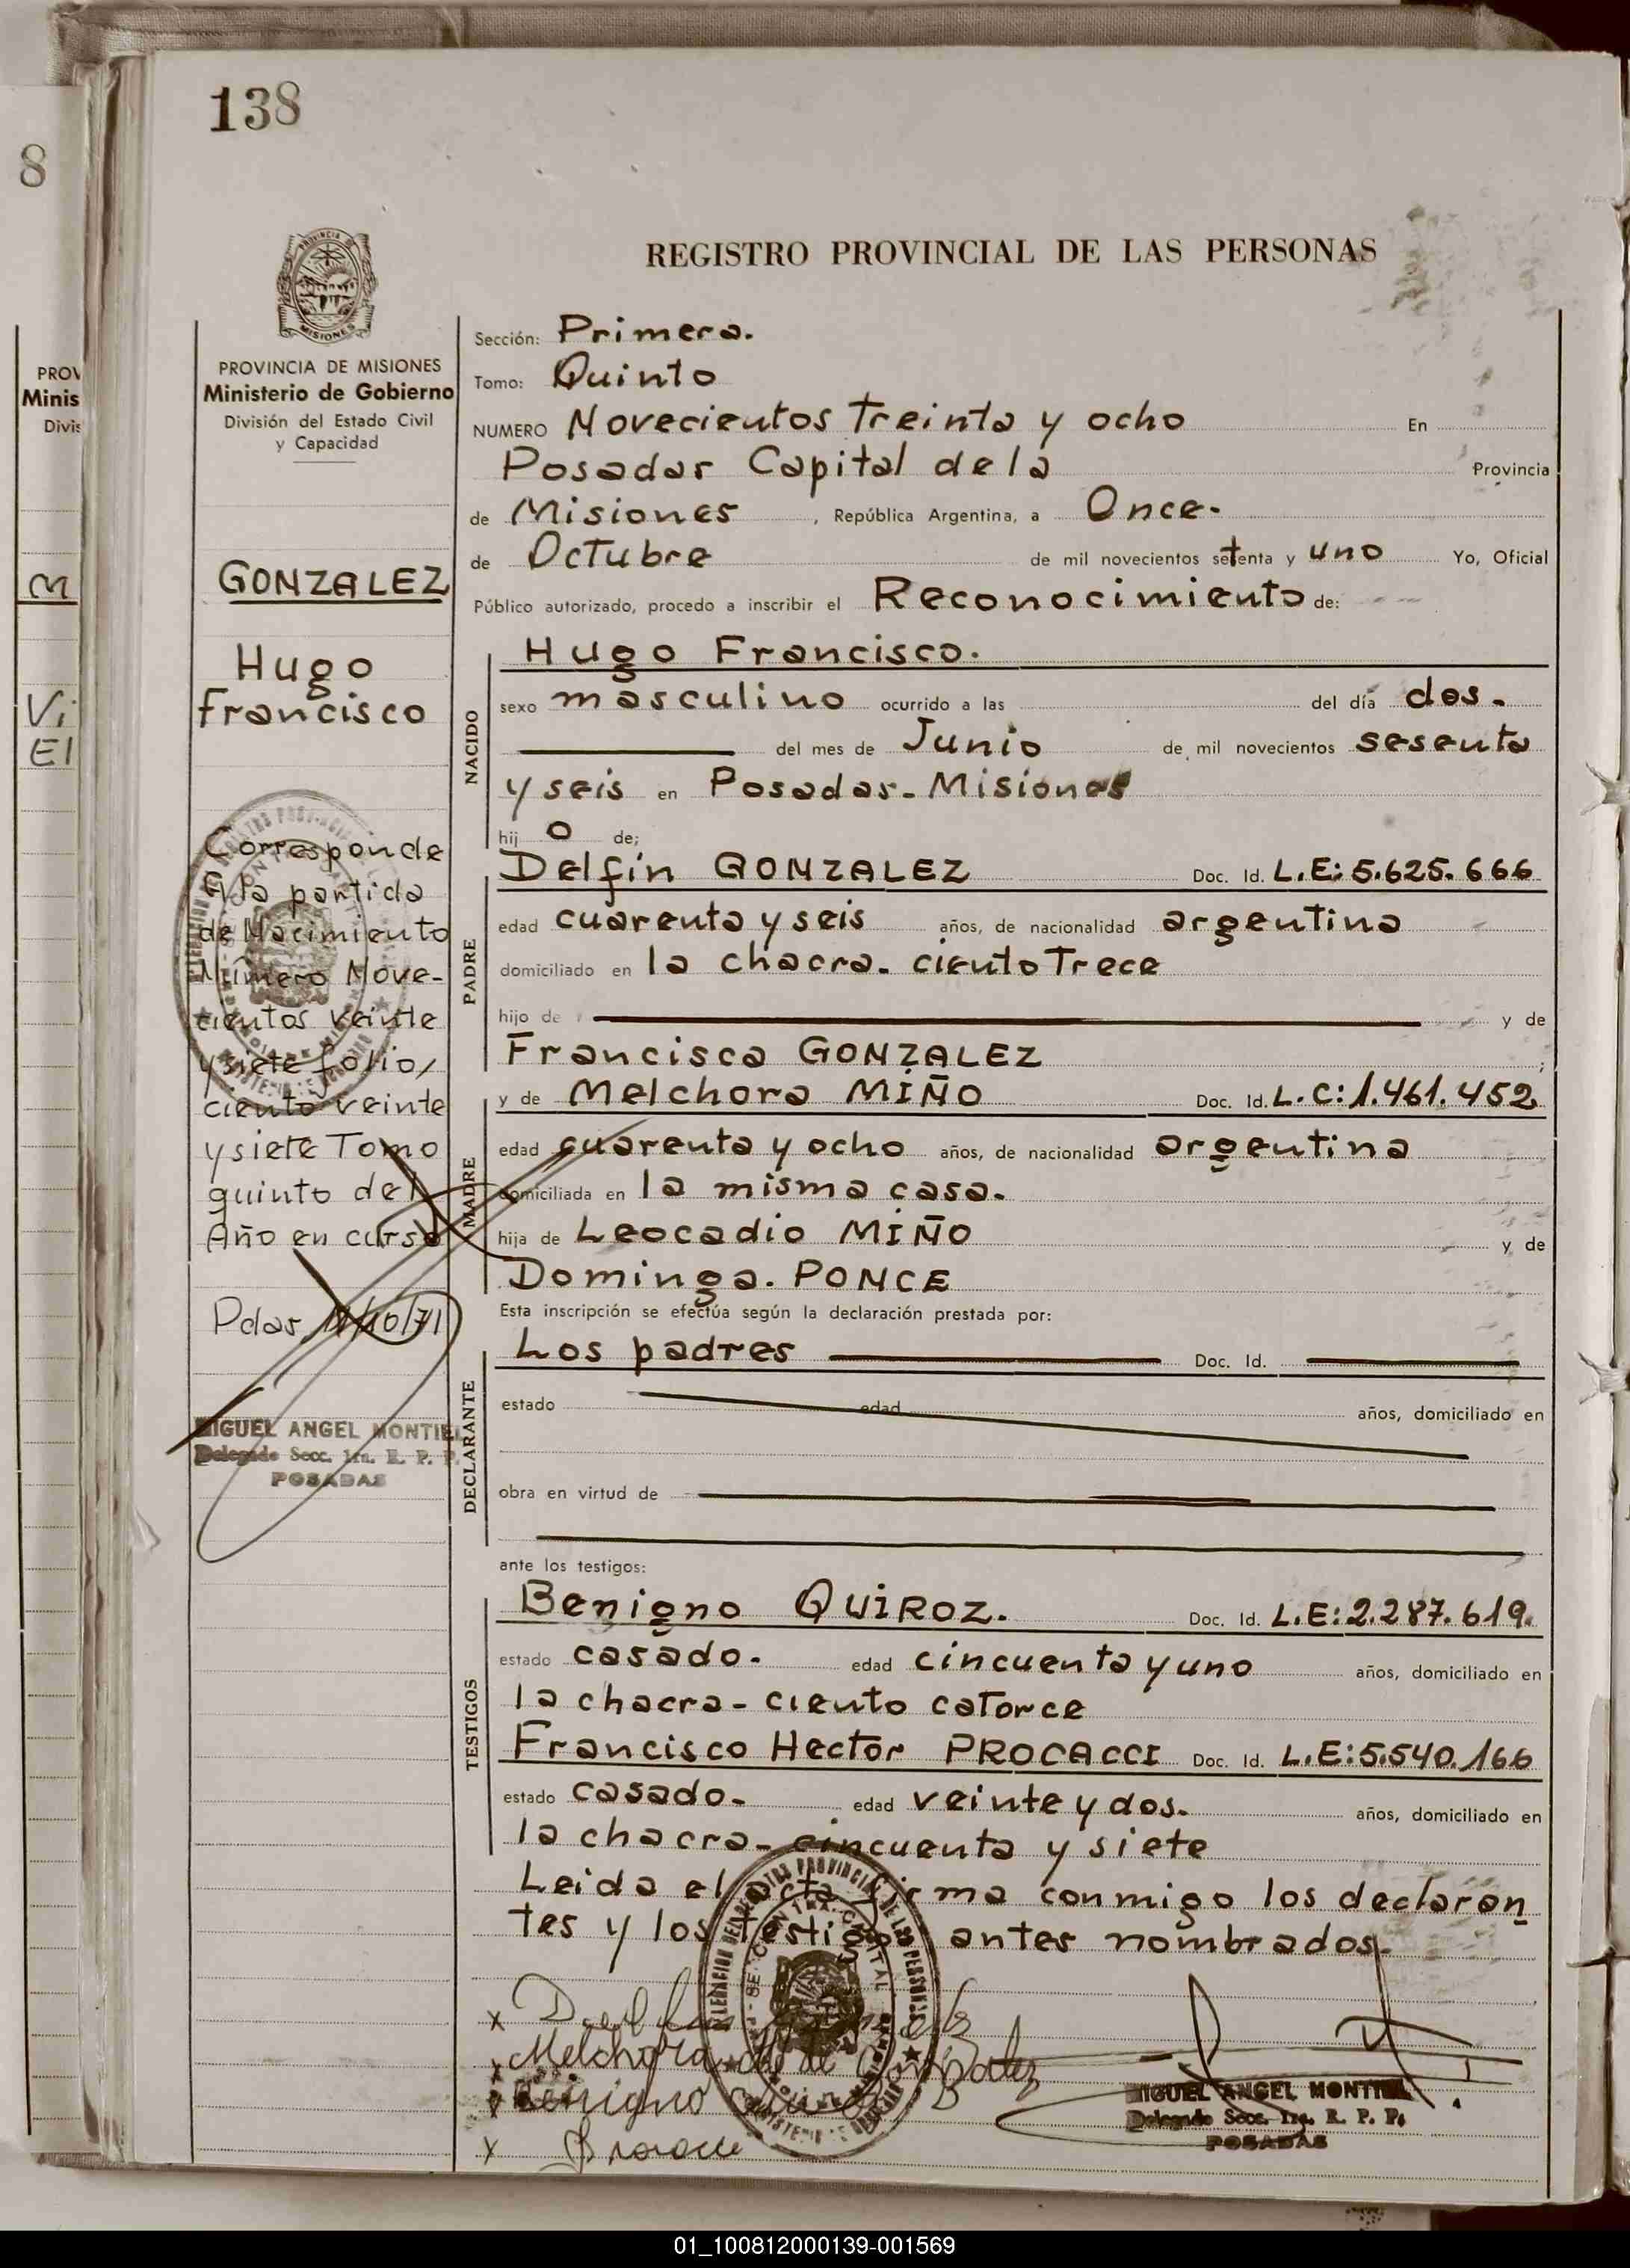 138
8
REGISTRO PROVINCIAL DE LAS PERSONAS
MISIONES
PROVINCIA DE MISIONES
Ministerio de Gobierno
División del Estado Civil
y Capacidad
GONZALEZ
Hugo
Francisco
Corresponde
A la partida
de Nacimiento
Número Nove-
cientos veinte
y siete folio/
ciento veinte
y siete Tomo
quinto del
Año en curso
Pdas, 11/10/71
MIGUEL ANGEL MONTIEL
Delegado Secc. 1ra. R. P. P.
POSADAS
PROV
Minis
Divis
M
Vi
El
Sección: Primera.
Tomo: Quinto
NUMERO Novecientos treinta y ocho En
Posadas Capital de la Provincia
de Misiones, República Argentina, a Once.
de Octubre de mil novecientos setenta y uno Yo, Oficial
Público autorizado, procedo a inscribir el Reconocimiento de:
NACIDO
Hugo Francisco.
sexo masculino ocurrido a las del día dos.
del mes de Junio de mil novecientos sesenta
y seis en Posadas-Misiones
hij o de;
PADRE
Delfín GONZALEZ Doc. Id. L.E: 5.625.666
edad cuarenta y seis años, de nacionalidad argentina
domiciliado en la chacra. ciento Trece
hijo de y de
Francisca GONZALEZ ;
MADRE
y de Melchora MIÑO Doc. Id. L.C: 1.461.452
edad cuarenta y ocho años, de nacionalidad argentina
domiciliada en la misma casa.
hija de Leocadio MIÑO y de
Dominga. PONCE
Esta inscripción se efectúa según la declaración prestada por:
DECLARANTE
Los padres Doc. Id.
estado edad años, domiciliado en
obra en virtud de
ante los testigos:
TESTIGOS
Benigno QUIROZ. Doc. Id. L.E: 2.287.619.
estado casado. edad cincuenta y uno años, domiciliado en
la chacra - ciento catorce
Francisco Hector PROCACCI Doc. Id. L.E: 5.540.166
estado casado. edad veinte y dos. años, domiciliado en
la chacra - cincuenta y siete
Leida el acta firma conmigo los declaran
tes y los testigos antes nombrados.
x
x Melchora de Gonzalez
x Benigno
x
MIGUEL ANGEL MONTIEL
Delegado Secc. 1ra. R. P. P.
POSADAS
01_100812000139-001569